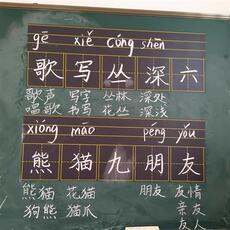 gē xiě cóng shēn
歌 写 丛 深 六
歌声 写字 丛林 深处
唱歌 书写 花丛 深浅
xióng māo péng yǒu
熊 猫 九 朋 友
熊猫 花猫 朋友 友情
狗熊 猫爪 亲友
友人